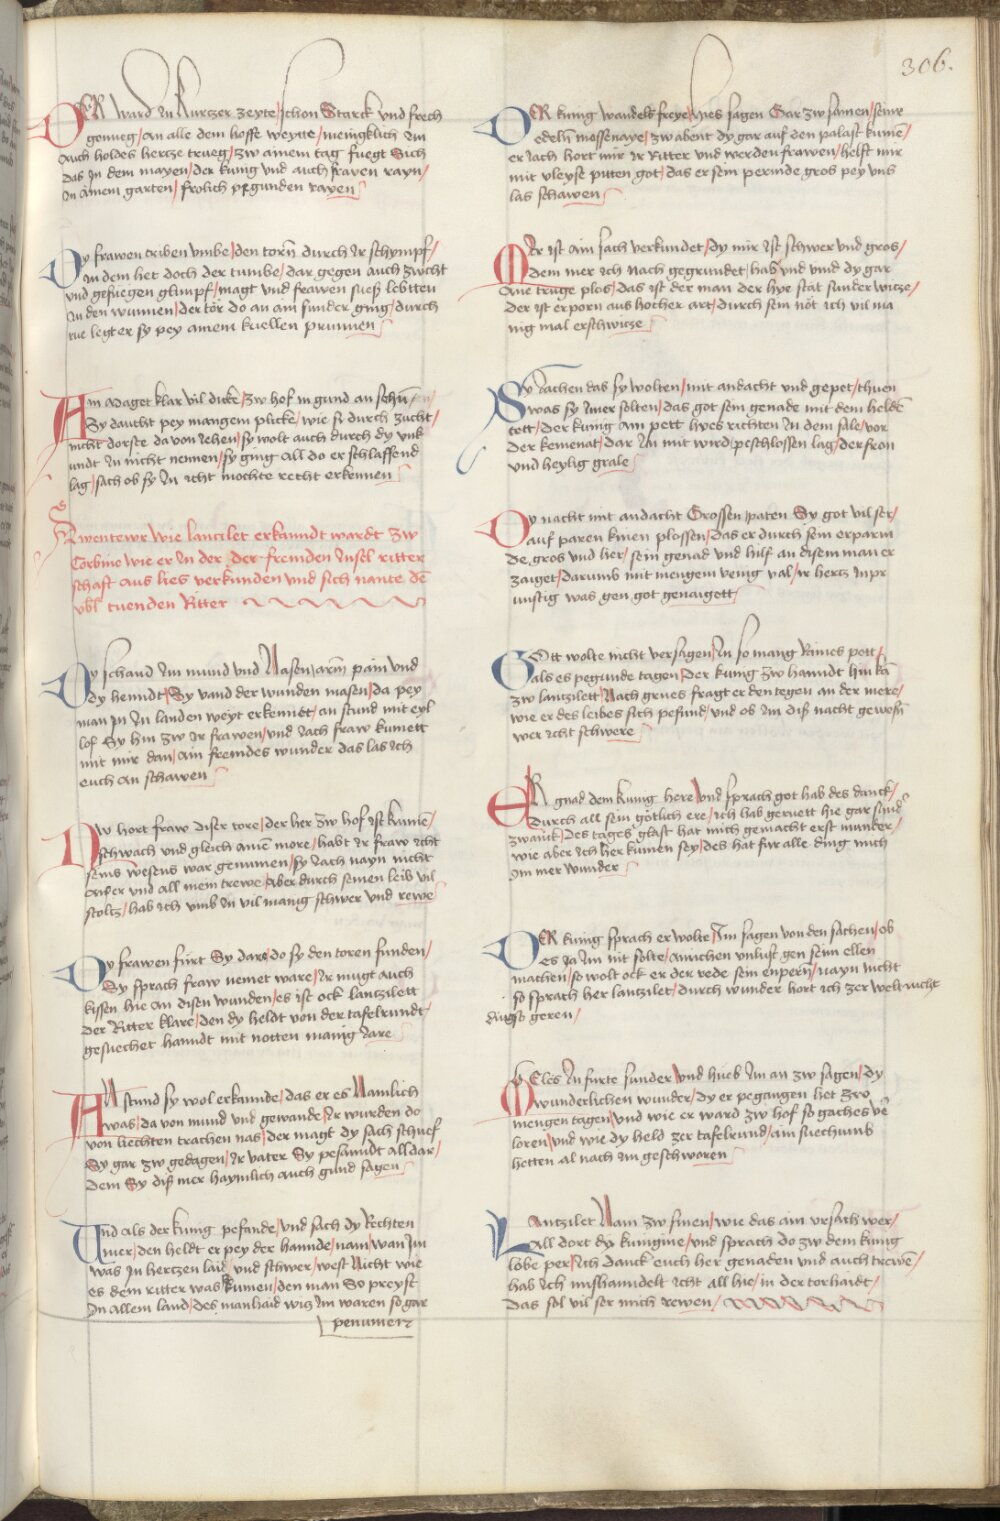 306.
DER ward in kurtzer zeyte / schon Starck vnd frech
genueg / an alle dem hoffe weytte / menigklich Im
Auch holdes hertze trueg / zw ainem tag fuegt Sich
das In dem mayen / der kung vnd auch frawen rayn /
In ainem garten / frolich pegunden rayen
Dy frawen triben vmbe / den torn durch Ir schympf /
In dem het doch der tumbe / dar gegen auch zucht
vnd gefuegen glimpf / magt vnd frawen sues lebtten
In den wunnen / der tor do an am sunder ging / durch
rue legt er sy pey ainem kuellen prunnen
Ain Maget klar vil dicke / zw hof in gund an
Sy daucht pey mangem plicke / wie sy durch zucht /
nicht dorste da von Jehen / sy wolt auch durch dy
In nicht nennen / sy ging all do er schlaffend
lag / sach ob sy In icht mochte recht erkennen
Awentewr wie lantzilet erkanndt wardt zw
Corbine wie er in der der fremden Insel ritter
schaft aus lies verkunden vnd sich nante de
vbl tuenden Ritter
Dy schand Im mund vnd Nasen / arm pain vnd
dy henndt / Sy vand der wunden masen / da pey
man In In landen weyt erkennet / an stund mit eyl
lof Sy hin zw Ir frawen / vnd Jach fraw kumett
mit mir dan / ain fremdes wunder das las ich
euch an schawen
Nw hort fraw diser tore / der her zw hof ist kume /
schwach vnd gleich aine more / habt Ir fraw icht
seins wesens war genumen / sy Jach nayn nicht
auf mein trewe / Aber durch seinen leib vil
stoltz / hab ich vmb In vil manig schwer vnd rewe
Dy frawen furt Sy dare / do sy den toren funden /
Sy sprach fraw nemet ware / Ir mugt auch
kissen hie an disen wunden / es ist ock lantzilett
der Ritter klare / den dy heldt von der tafelrundt /
gesuechet hanndt mit notten manig Jare
An stund sy wol erkannde / das er es Namlich
was / da von mund vnd gewande / Ir wurden do
von liechten trachen nas / der magt dy sach schuef
Sy gar zw gedagen / Ir vater Sy pesanndt alldar /
dem Sy dis mer haymlich auch gund sagen
Vnd als der kunig pefande / vnd sach dy Rechten
mer / den heldt er pey der hannde / nam / wan Im
was In hertzen laid vnd schwer / west Nicht wie
es dem ritter was kumen / den man So preyst
In allem land / des manhaid was Im waren so gar
penumen
DER kunig wandels freye / hies sagen Gar zw samen / seine
edeln massenaye / zw abent dy gar auf den palast kume /
er Jach hort mir Ir Ritter vnd werden frawen / helft mir
mit vleysz piten got / das er sein perinde gros pey vns
las schawen
Mer ist ain sach verkundet / dy mir ist schwer vnd gros /
dem mer ich nach gegrundet / hab vnd vind dy gar
ane truge plos / das ist der man der hye stat sunder witze /
der ist erporn aus hocher art / durch sein not ich vil ma
nig mal erschwitze
Sy Jachen das sy wolten / mit andacht vnd gepet / thuen
was sy Imer solten / das got sein genade mit dem helde
tett / der kunig ain pett hies richten In dem sale / vor
der kemenat / dar In mit wird peschlossen lag / der fron
vnd heylig grale
Dy nacht mit andacht Grossen / paten Sy got vil ser /
auf paren knien plossen / das er durch sein erparm
de gros vnd her / sein genad vnd hilf an disem man er
zaiget / darumb mit mengem venig val / Ir hertz Inpr
unstig was gen got genaigett
Gott wolte nicht versagen / In so mang kines pett /
als es pegunde tagen / der kunig zw hanndt hin ka
zw lantzilett / Nach grues fragt er den tegen an der mere /
wie er des leibes sich pefund / vnd ob Im dis nacht gewesn
wer icht schwere
Er gnad dem kunig here / vnd sprach got hab des danck /
durch all sein gotlich ere / ich hab geruett hie gar sund
zwanck / des tages glast hat mich gemacht erst munder /
wie aber ich her kumen sey / des hat fur alle ding mich
Im mer wunder
DER kunig sprach er wolte / Im sagen von den sachen / ob
es Ja Im nit solte / ainichen vnlust gen seinn ellen
machen / so wolt ock er der rede sein enpern / nayn nicht
so sprach her lantzilet / durch wunder hort ich zer welt nicht
dings geren /
Meles In furte sunder / vnd hueb Im an zw sagen / dy
wunderlichen wunder / dy er pegangen het zwo
mengen tagen / vnd wie er ward zw hof so gaches ve
loren / vnd wie dy held zer tafelrund / ain suechumb
hetten al nach Im geschworen
Lantzilet Nam zw sinen / wie das ain vrsach wer /
All dort dy kunigine / vnd sprach do zw dem kunig
lobe per / Ich danck euch her genaden vnd auch trewe /
hab ich misshanndelt icht all hie / in der torhaidt /
das sol vil ser mich rewen /